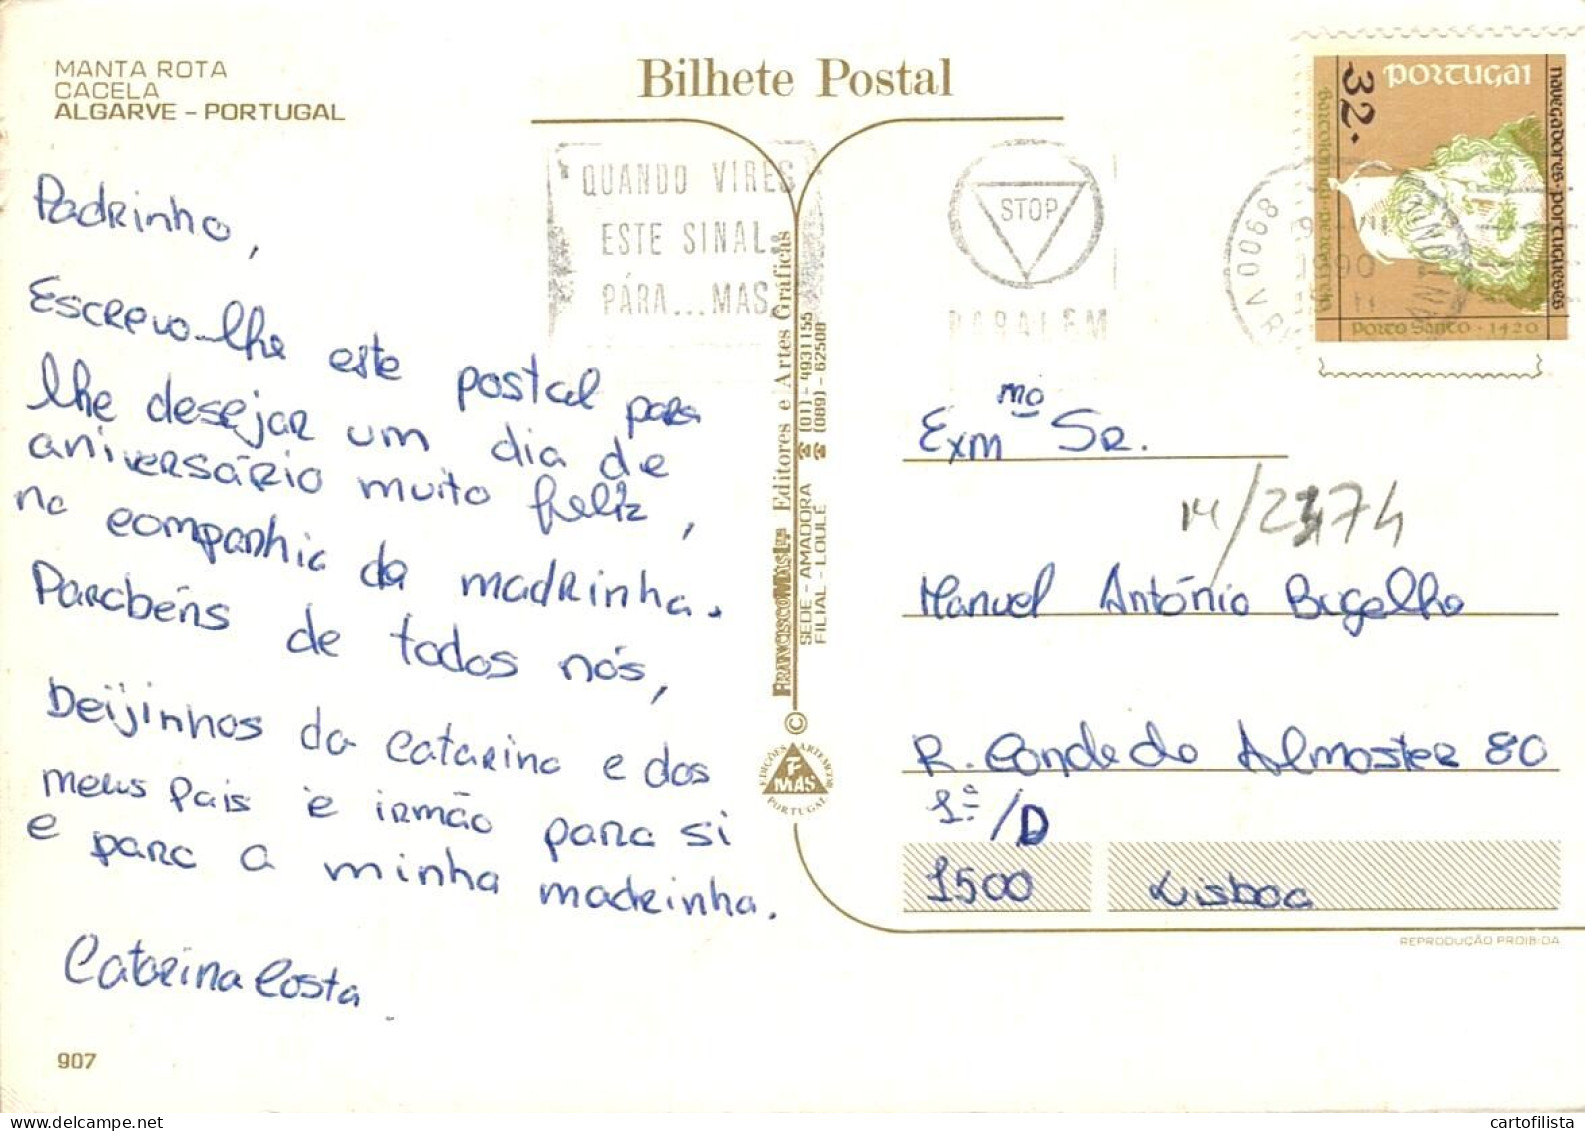 MANTA ROTA
CACELA
ALGARVE - PORTUGAL
Bilhete Postal
Padrinho,
Escrevo-lhe este postal para
lhe desejar um dia de
aniversário muito feliz,
na companhia da madrinha.
Parabéns de todos nós,
Beijinhos da Catarina e dos
meus pais e irmão para si
e para a minha madrinha.
Catarina Costa.
907
QUANDO VIRES
ESTE SINAL
PÁRA...MAS
STOP
PARALEM
Editores e Artes Gráficas
SEDE - AMADORA ☎ (01) - 4931155
FILIAL - LOULÉ ☎ (089) - 62508
©
F
MAS
PORTUGAL
A 0068
1990
PORTUGAL
32.
navegadores portugueses
Porto Santo · 1420
Exmº Sr.
mo
M/2374
Manuel António Bugalho
R. Conde de Almoster 80
1º/D
1500 Lisboa
REPRODUÇÃO PROIBIDA
cartofilista